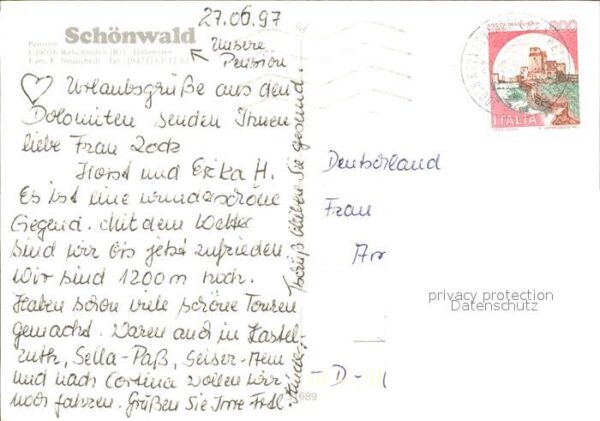 27.06.97
Schönwald
Pension
I-39056 Welschnofen (Bz) - Dolomiten
Unsere
Pension
♡ Urlaubsgrüße aus den
Dolomiten senden Ihnen
liebe Frau
Horst und Erika H.
Es ist eine wunderschöne
Gegend. Mit dem Wetter
sind wir bis jetzt zufrieden
Wir sind 1200m hoch.
Haben schon viele schöne Touren
gemacht. Waren auch in Kastel-
ruth, Sella-Paß, Seiser-Alm
und nach Cortina wollen wir
noch fahren. Grüßen Sie Ihre Frdl.
Tschüß bleiben Sie gesund.
800
ITALIA
Deutschland
Frau
An
privacy protection
Datenschutz
-D-
689